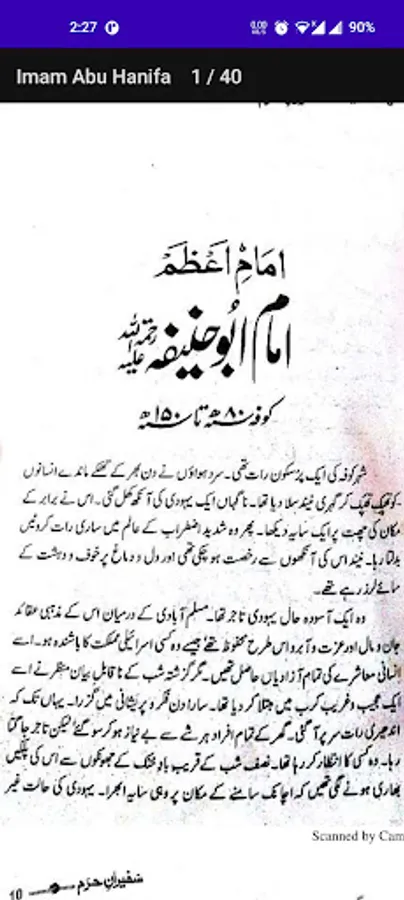 2:27 0.00 KB/S 90%
Imam Abu Hanifa 1 / 40
امام اعظم
امام ابو حنیفہ رحمۃ اللہ علیہ
کوفہ ۸۰ھ تا ۱۵۰ھ
شہر کوفہ کی ایک پرسکون رات تھی۔ سرد ہواؤں نے دن بھر کے تھکے ماندے انسانوں
کو تھپک تھپک کر گہری نیند سلا دیا تھا۔ ناگہاں ایک یہودی کی آنکھ کھل گئی۔ اس نے برابر کے
مکان کی چھت پر ایک سایہ دیکھا۔ پھر وہ شدید اضطراب کے عالم میں ساری رات کروٹیں
بدلتا رہا۔ نیند اس کی آنکھوں سے رخصت ہو چکی تھی اور دل و دماغ پر خوف و دہشت کے
سائے لرز رہے تھے۔
وہ ایک آسودہ حال یہودی تاجر تھا۔ مسلم آبادی کے درمیان اس کے مذہبی عقائد
جان و مال اور عزت و آبرو اس طرح محفوظ تھے جیسے وہ کسی اسرائیلی مملکت کا باشندہ ہو۔ اسے
انسانی معاشرے کی تمام آزادیاں حاصل تھیں۔ مگر گزشتہ شب کے ناقابل بیان منظر نے اسے
ایک عجیب و غریب کرب میں مبتلا کر دیا تھا۔ سارا دن فکر و پریشانی میں گزرا۔ یہاں تک کہ
اندھیری رات سر پر آ گئی۔ گھر کے تمام افراد ہر شے سے بے نیاز ہو کر سو گئے لیکن تاجر جاگتا
رہا۔ وہ کسی کا انتظار کر رہا تھا۔ نصف شب کے قریب باد خنک کے جھونکوں سے اس کی پلکیں
بھاری ہونے لگی تھیں کہ اچانک سامنے کے مکان پر وہی سایہ ابھرا۔ یہودی کی حالت غیر
Scanned by Cam
سفیران حرم 10